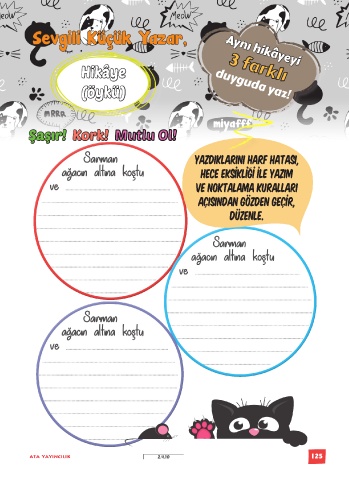 MEOW
MEOW
Sevgili Küçük Yazar,
Hikâye
(öykü)
Aynı hikâyeyi
3 farklı
duyguda yaz!
MRRR
miyafff
Şaşır! Kork! Mutlu Ol!
Sarman
ağacın altına koştu
ve
YAZDIKLARINI HARF HATASI,
HECE EKSİKLİĞİ İLE YAZIM
VE NOKTALAMA KURALLARI
AÇISINDAN GÖZDEN GEÇİR,
DÜZENLE.
Sarman
ağacın altına koştu
ve
Sarman
ağacın altına koştu
ve
ATA YAYINCILIK
125